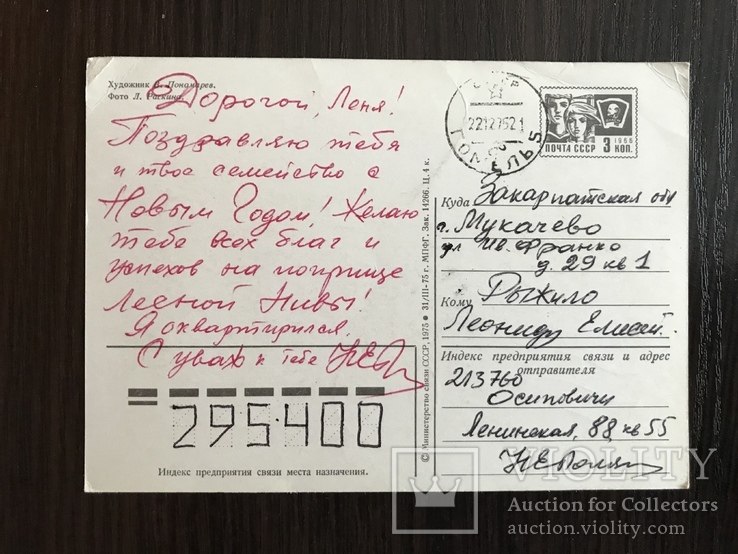 Художник В. Пономарев.
Фото Л. Раскина.
Дорогой, Леня!
Поздравляю тебя
и твое семейство с
Новым Годом! Желаю
тебе всех благ и
успехов на поприще
Лесной Нивы!
Я оквартирился.
С уваж к тебе
295400
Индекс предприятия связи места назначения.
© Министерство связи СССР, 1975 ● 31/III-75 г. МПФГ. Зак. 14266. Ц. 4 к.
СССР
22127521
ПОЧТА СССР 3 КОП.
1966
Куда Закарпатская обл
г. Мукачево
ул Ив. Франко
д. 29 кв 1
Кому Рыжило
Леониду Елисей.
Индекс предприятия связи и адрес
отправителя
213760
Осиповичи
Ленинская, 88 кв 55
VIOLITY
Auction for Collectors
auction.violity.com